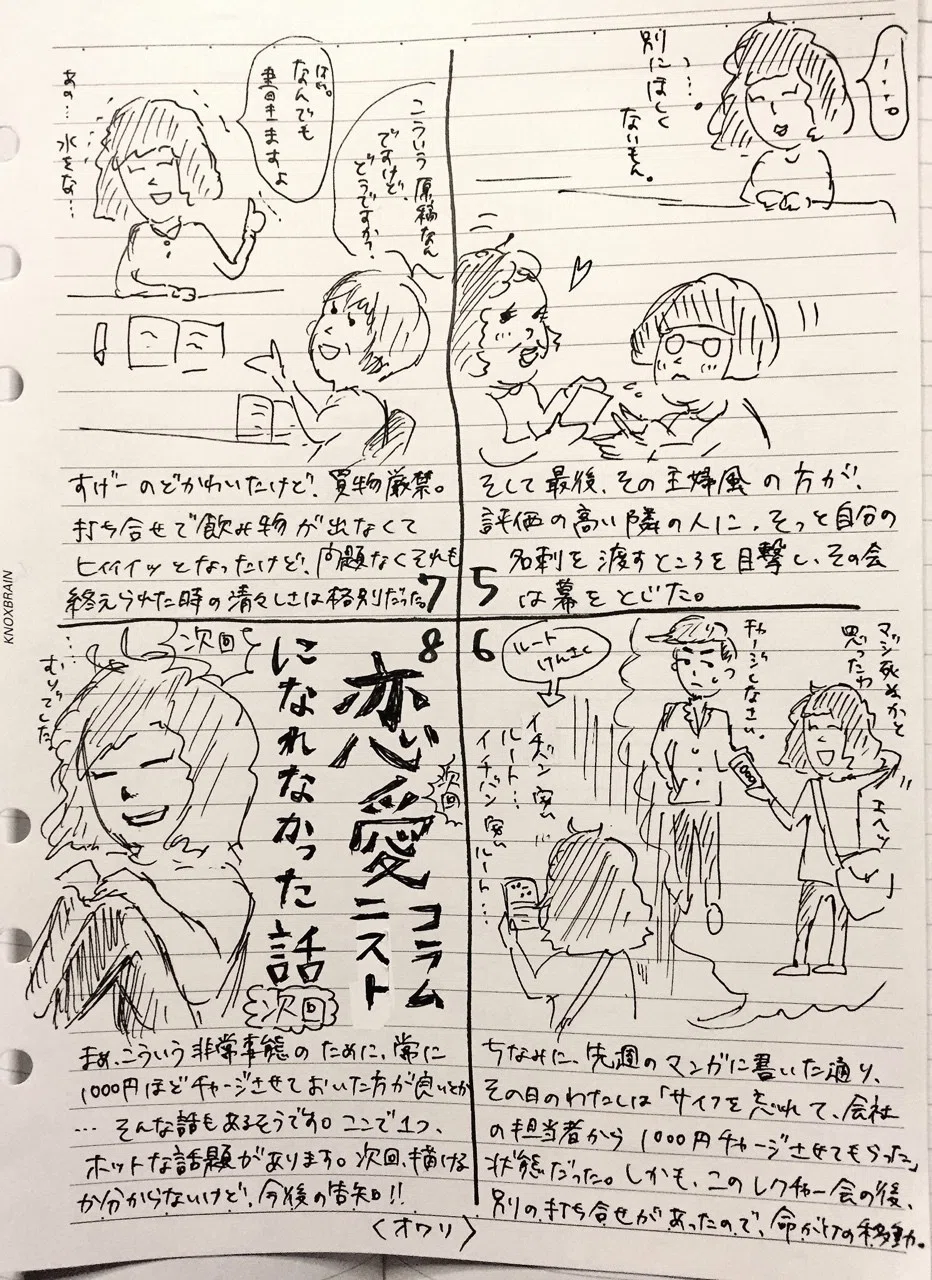 ・・・。
・・・。
別にほしく
ないもん。
そして最後、その主婦風の方が、
評価の高い隣の人に、そっと自分の
名刺を渡すところを目撃し、その会
は幕をとじた。
5
6
ルート
けんさく
イチバン安い
ルート…
イチバン安い
ルート…
チャージしなさい。
マジ死ぬかと
思ったわ
エヘッ
1000
ちなみに、先週のマンガに書いた通り、
その日のわたしは「サイフを忘れて、会社
の担当者から1000円チャージさせてもらった」
状態だった。しかも、このレクチャー会の後、
別の打ち合せがあったので、命がけの移動。
こういう原稿なん
ですけど、
どうですか?
はい。
なんでも
書きますよ
あの…水をな…
すげーのどかわいたけど、買物厳禁。
打ち合せで飲み物が出なくて
ヒィィイッとなったけど、問題なくそれも
終えられた時の清々しさは格別だった。
7
8
恋愛
コラム
ニスト
になれなかった話
次回
次回
次回
…むりでした
まぁ、こういう非常事態のために、常に
1000円ほどチャージさせておいた方が良いとか
…そんな話もあるそうです。ここで1つ、
ホットな話題があります。次回、描ける
か分からないけど、今後の告知!!
〈オワリ〉
KNOXBRAIN